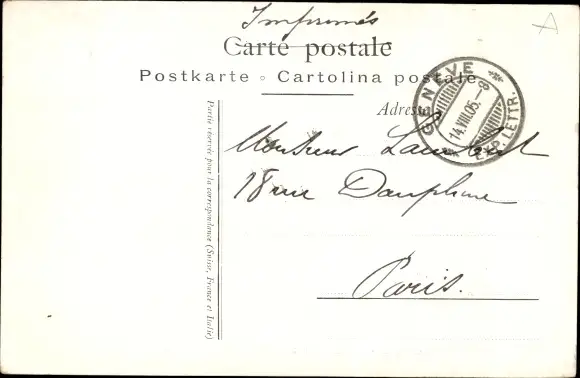 Imprimés
Carte postale
Postkarte ∘ Cartolina postale
Adresse
GENÈVE
14.VIII.05.-8
EXP. LETTR.
Monsieur Lambert
18 rue Dauphine
Paris.
Partie réservée pour la correspondance (Suisse, France et Italie)
A